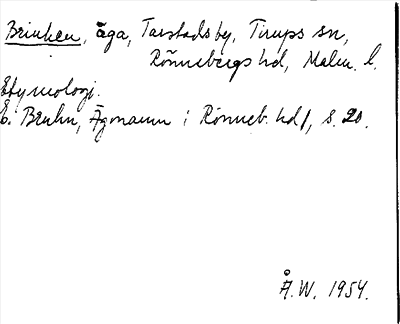 Brinken, äga, Tarstads by, Tirups sn,
Rönnebergs hd, Malm. l.
Etymologi.
E. Bruhn, Ägonamn i Rönneb. hd, s. 20.
Å.W. 1954.